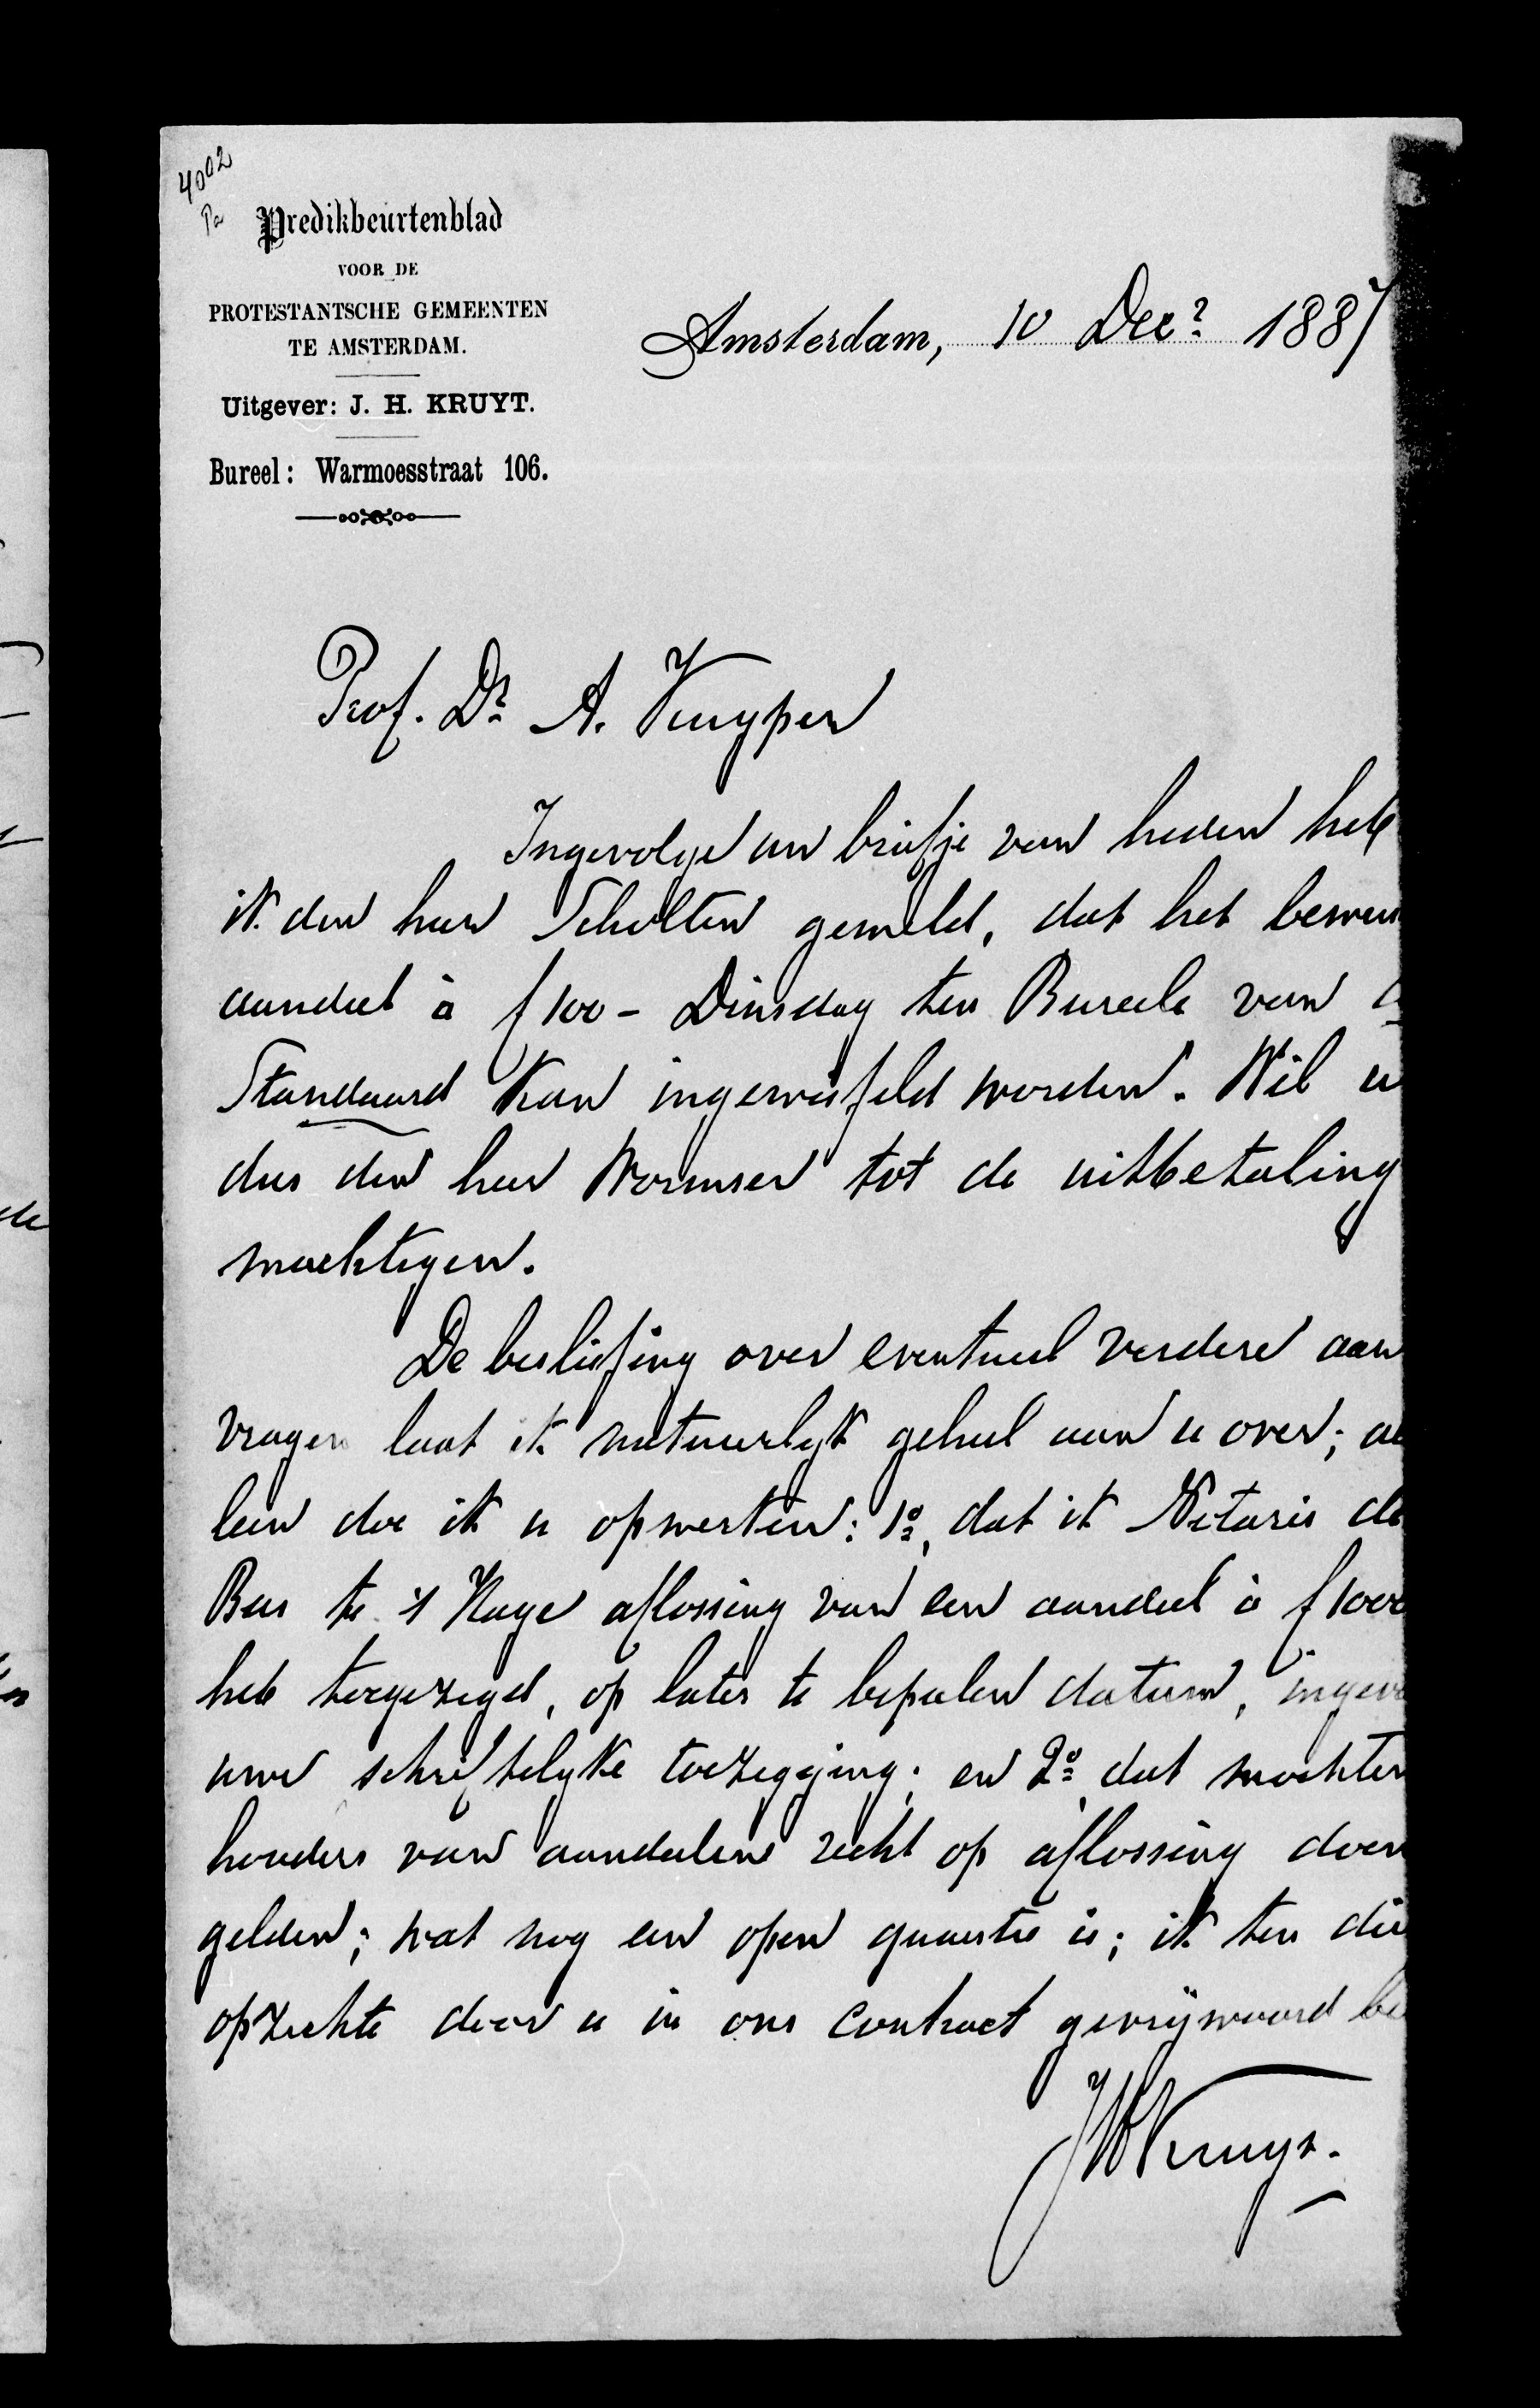 4002
Pa
Predikbeurtenblad
VOOR DE
PROTESTANTSCHE GEMEENTEN
TE AMSTERDAM.
Uitgever: J. H. KRUYT.
Bureel: Warmoesstraat 106.
Amsterdam, 10 Decr 1887
Prof. Dr A. Kuyper
Ingevolge uw briefje van heden heb
ik den heer Scholten gemeld, dat het bewus
aandeel à f 100 - Dinsdag ten Bureele van d
Standaard kan ingewisseld worden. Wil u
dus den heer Wormser tot de uitbetaling
machtigen.
De beslissing over eventueel verdere aan
vragen laat ik natuurlyk geheel aan u over; al
leen doe ik u opmerken: 1o, dat ik Notaris de
Bas te 's Hage aflossing van een aandeel à f 1000
heb toegezegd, op later te bepalen datum, ingevo
uwe schriftelyke toezegging; en 2o dat mochten
houders van aandeelen recht op aflossing doen
gelden; wat nog een open quaestie is; ik ten die
opzichte door u in ons contract gevrijwaard be
JHKruyt.